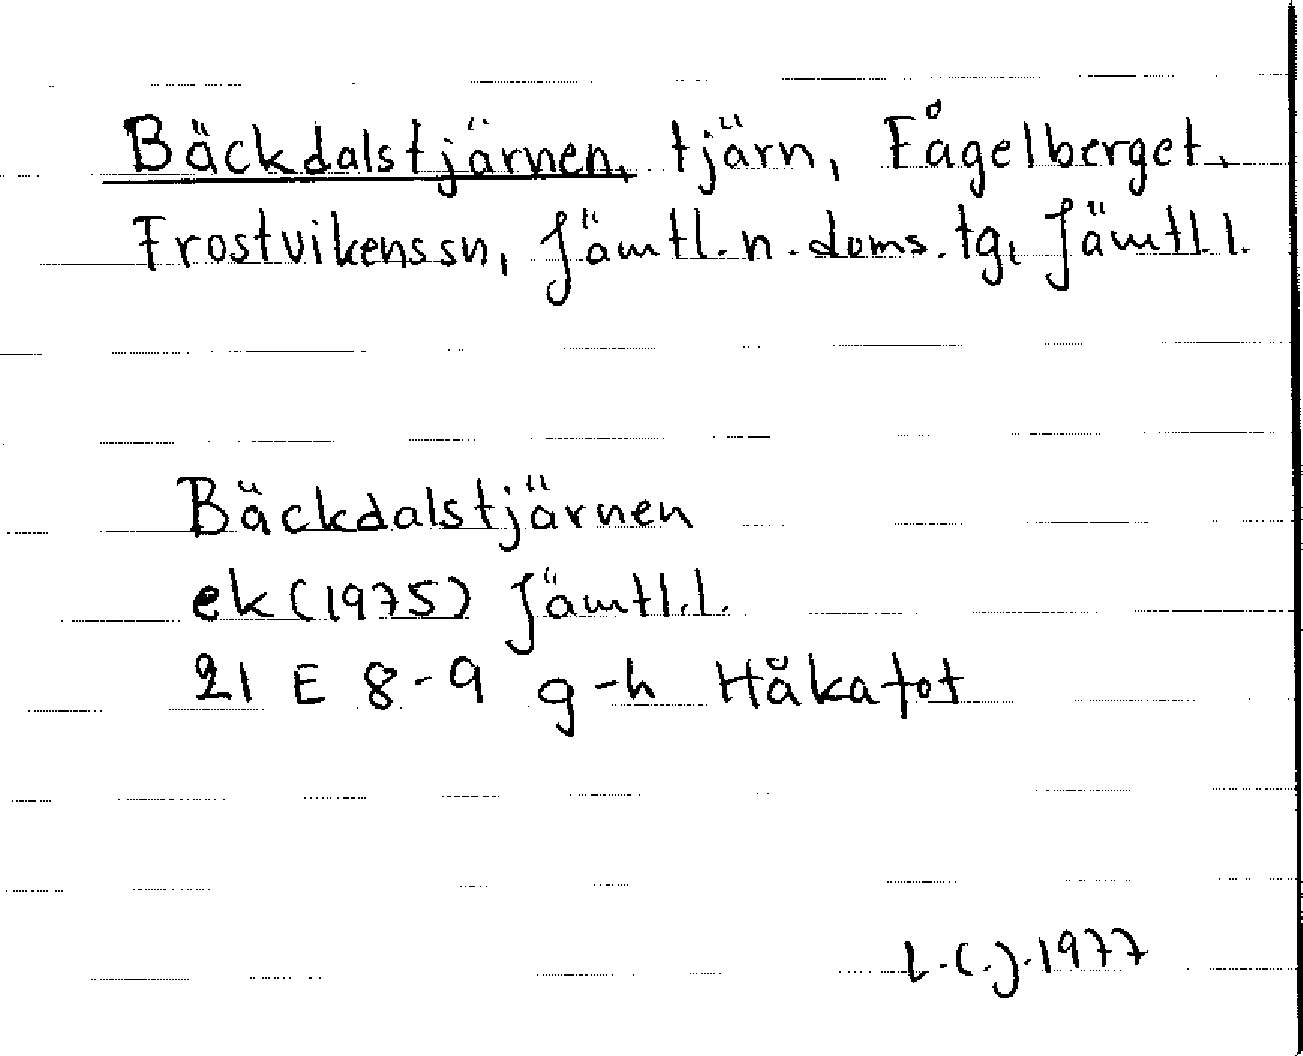 Bäckdalstjärnen, tjärn, Fågelberget,
Frostvikens sn, Jämtl. n. doms. tg, Jämtl. l.
Bäckdalstjärnen
ek (1975) Jämtl. l.
21 E 8-9 g-h Håkafot
L.C.J. 1977